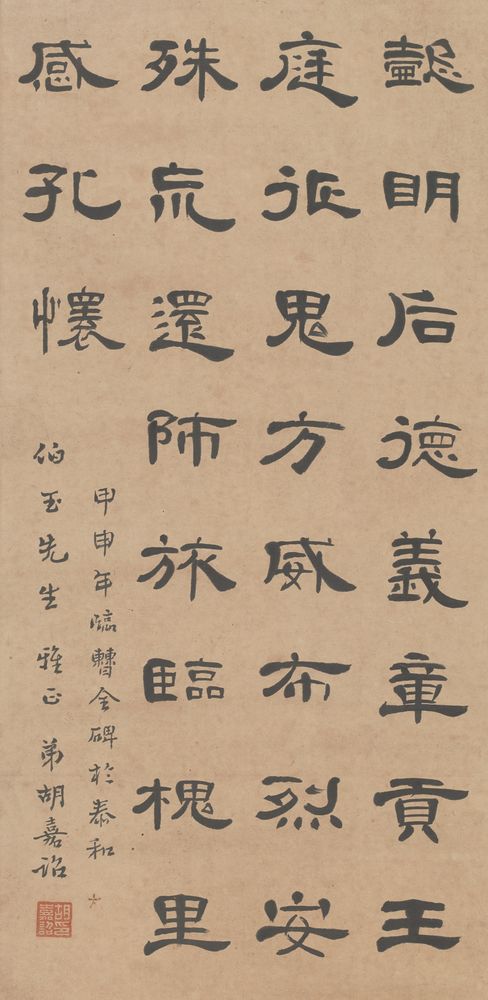 懿明后德義章貢王
庭征鬼方威布烈安
殊荒還師旅臨槐里
感孔懷
甲申年臨曹全碑於泰和
伯玉先生 雅正 弟胡嘉詔
胡嘉詔印